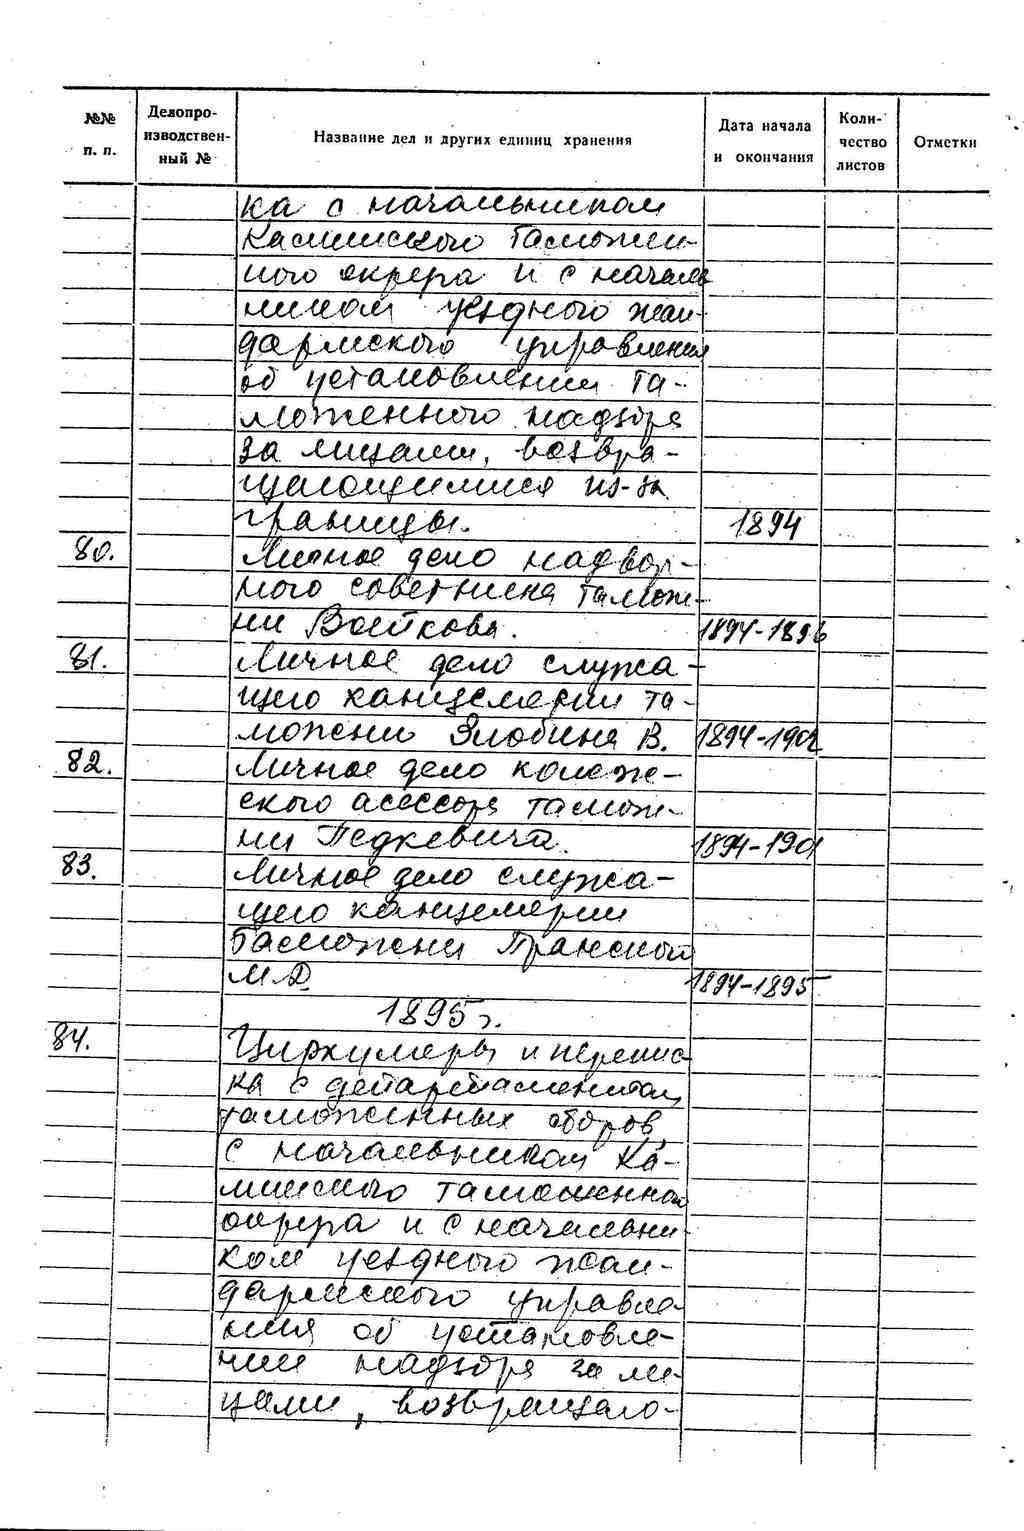 №№ п. п.
Делопро-
изводствен-
ный №
Название дел и других единиц хранения
Дата начала
и окончания
Коли-
чество
листов
Отметки
ка с начальником
Калишского таможен-
ного округа и с началь
ником уездного жан-
дармского управления
об установлении та-
моженного надзора
за лицами, возвра-
щающимися из-за
границы. 1894
80. Личное дело надвор-
ного советника тамож-
ни Войткова. 1894-1896
81. Личное дело служа-
щего канцелярии та-
можни Злобина В. 1894-1902
82. Личное дело колеж-
ского асессора тамож-
ни Педкевича. 1894-1901
83. Личное дело служа-
щего канцелярии
таможни
М.Д. 1894-1895
1895 г.
84. Циркуляры и перепис-
ка с департаментом
таможенных сборов,
с начальником Ка-
лишского таможенного
округа и с начальни-
ком уездного жан-
дармского управле-
ния об установле-
нии надзора за ли-
цами, возвращаю-